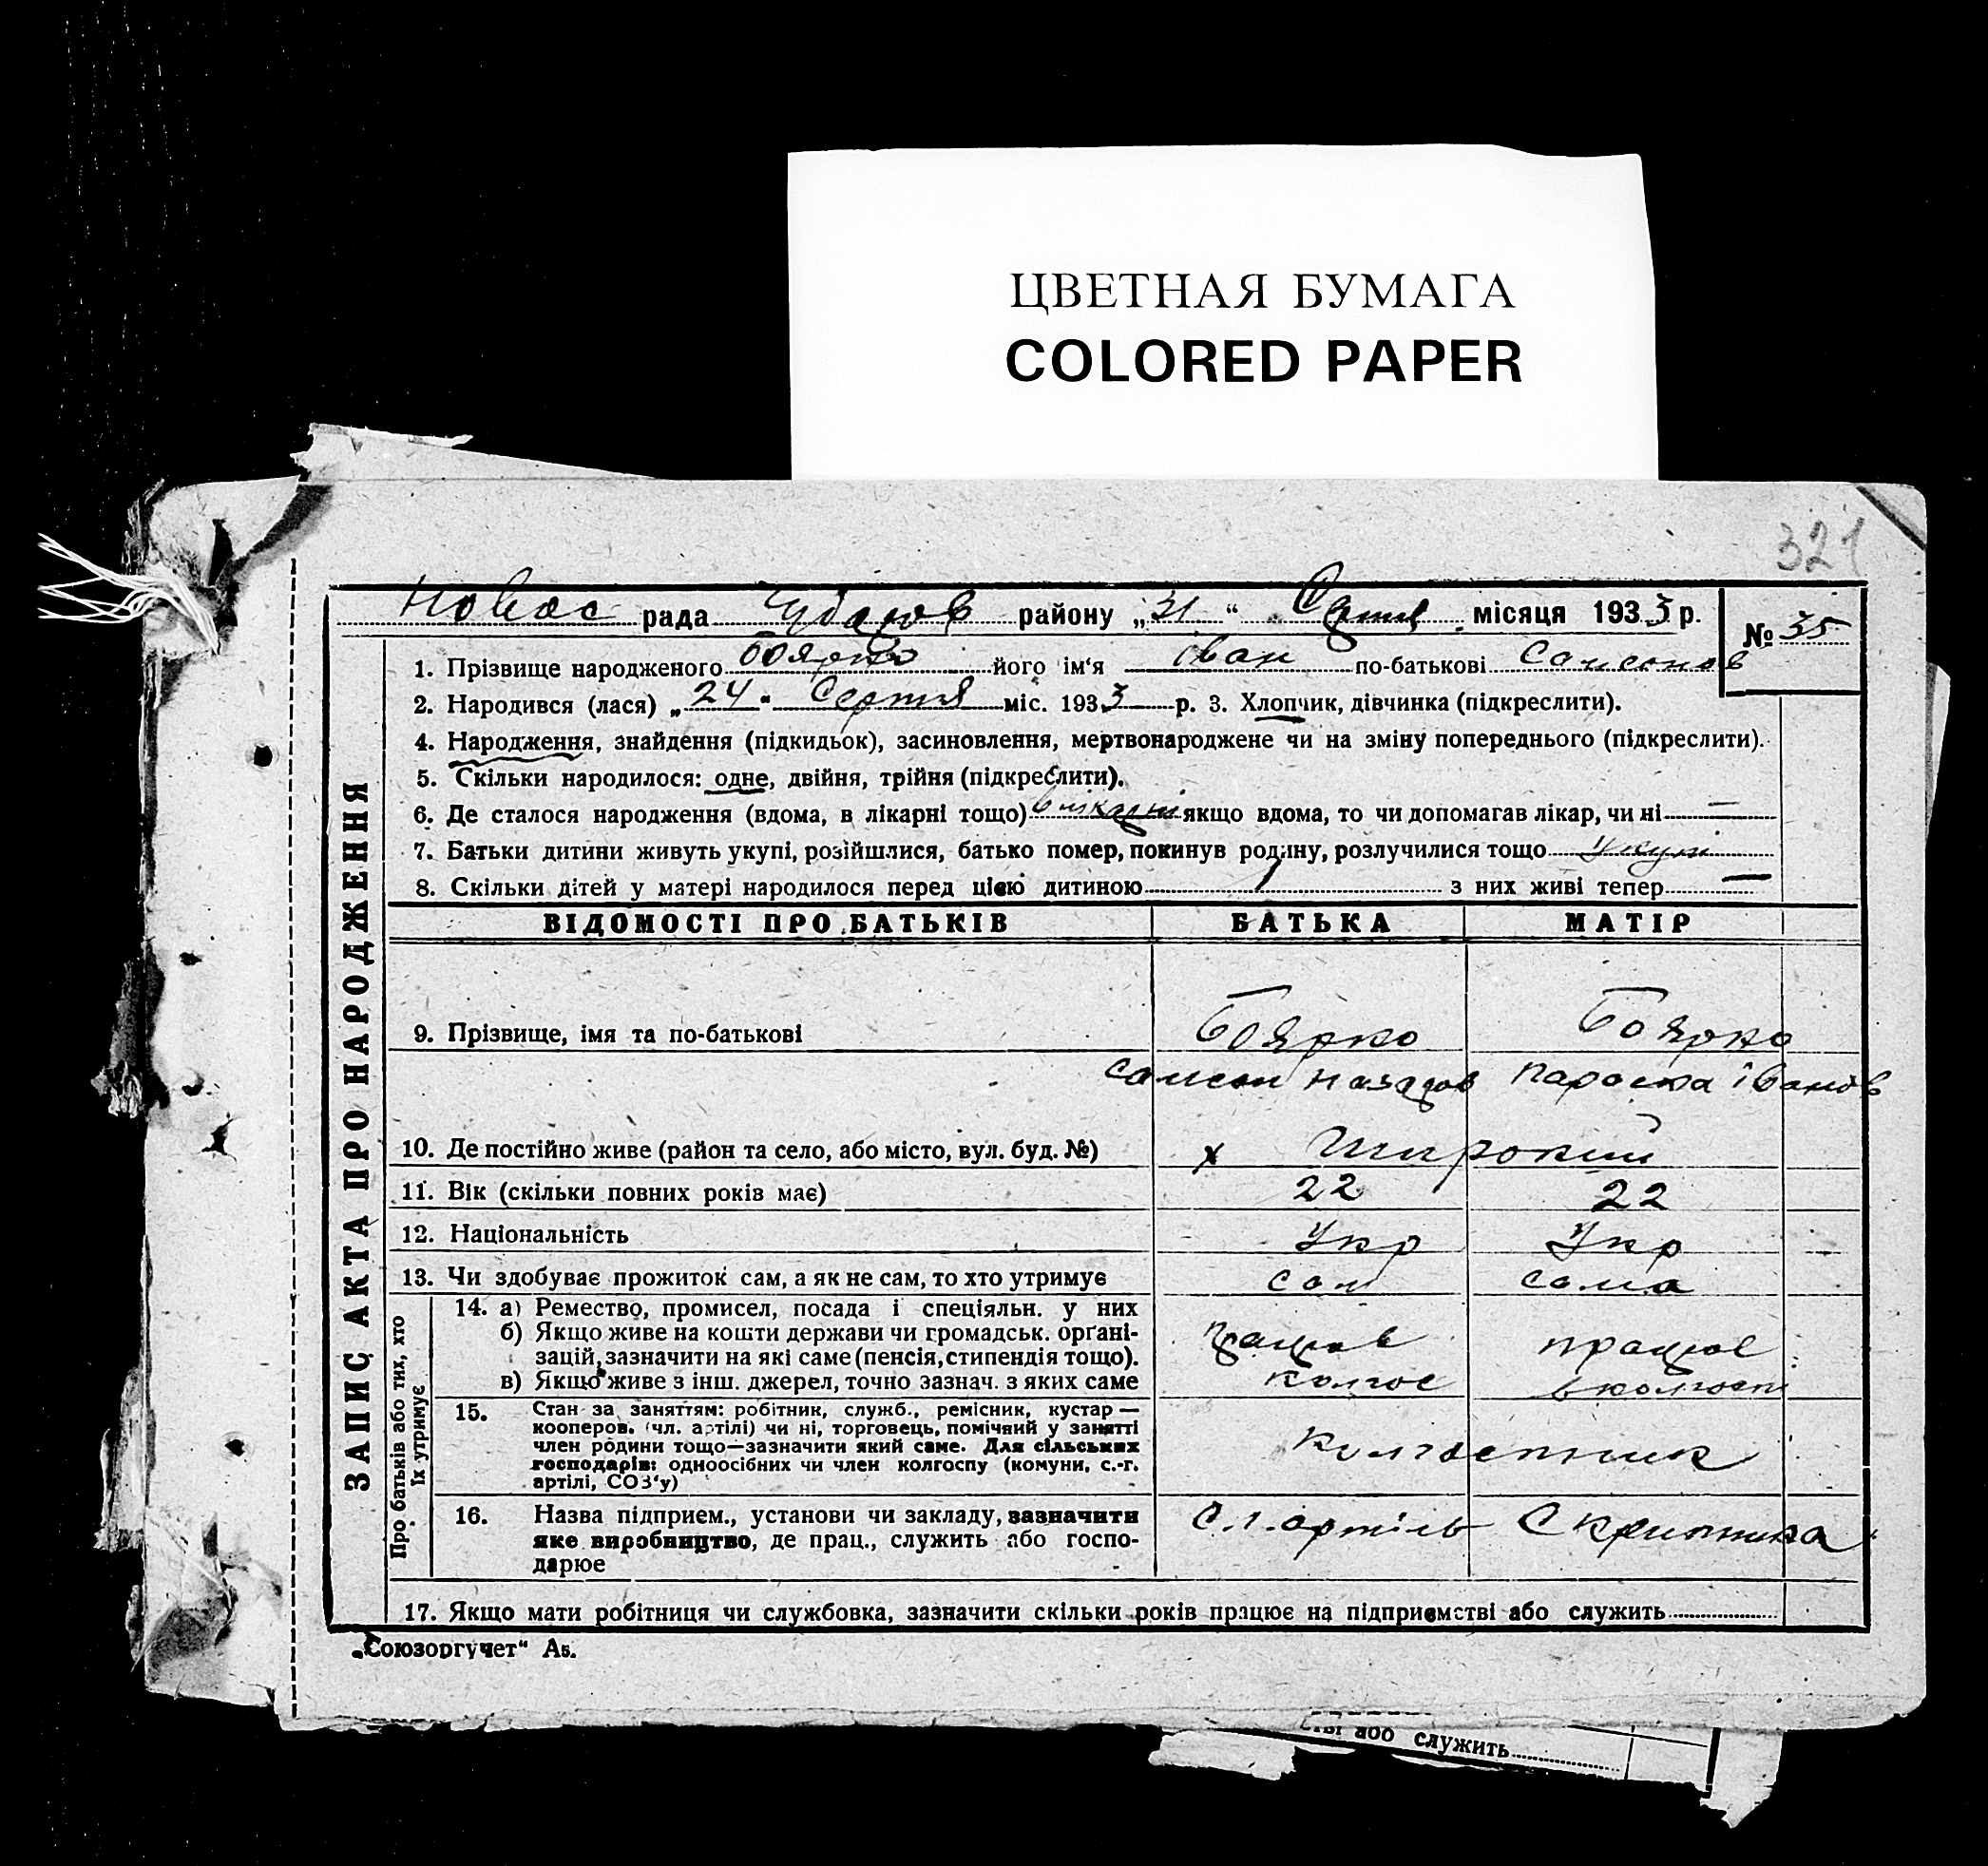 ЦВЕТНАЯ БУМАГА
COLORED PAPER
321
рада Чубарів району „31“ Серпня місяця 1933 р.
№ 35
1. Прізвище народженого Боярко його ім‘я Іван по-батькові Самсонов
2. Народився (лася) „24“ Серпня міс. 1933 р. 3. Хлопчик, дівчинка (підкреслити).
4. Народження, знайдення (підкидьок), засиновлення, мертвонароджене чи на зміну попереднього (підкреслити).
5. Скільки народилося: одне, двійня, трійня (підкреслити).
6. Де сталося народження (вдома, в лікарні тощо) в лікарні якщо вдома, то чи допомагав лікар, чи ні —
7. Батьки дитини живуть укупі, розійшлися, батько помер, покинув родину, розлучилися тощо укупі
8. Скільки дітей у матері народилося перед цією дитиною 1 з них живі тепер —
ЗАПИС АКТА ПРО НАРОДЖЕННЯ
ВІДОМОСТІ ПРО БАТЬКІВ БАТЬКА МАТІР
9. Прізвище, імя та по-батькові Боярко Боярко
Самсон Назаров Параска Іванов
10. Де постійно живе (район та село, або місто, вул. буд. №) х Широкий
11. Вік (скільки повних років має) 22 22
12. Національність Укр Укр
13. Чи здобуває прожиток сам, а як не сам, то хто утримує сам сама
Про батьків або тих, хто
їх утримує
14. а) Ремество, промисел, посада і спеціяльн. у них
б) Якщо живе на кошти держави чи громадськ. орґані-
зацій, зазначити на які саме (пенсія, стипендія тощо). працює працює
в) Якщо живе з інш. джерел, точно зазнач. з яких саме колгос в колгоспі
15. Стан за заняттям: робітник, служб., ремісник, кустар—
кооперов. (чл. артілі) чи ні, торговець, помічний у занятті
член родини тощо—зазначити який саме. Для сільських колгоспник
господарів: одноосібних чи член колгоспу (комуни, с.-г.
артілі, СОЗ‘у)
16. Назва підприєм., установи чи закладу, зазначити С.г. артіль Скрипника
яке виробництво, де прац., служить або госпо-
дарює
17. Якщо мати робітниця чи службовка, зазначити скільки років працює на підприємстві або служить
„Союзоргучет“ А5.
або служить